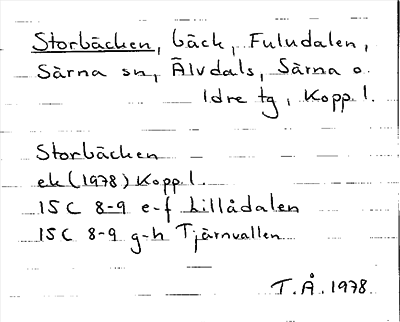 Storbäcken, bäck, Fuludalen,
Särna sn, Älvdals, Särna o.
Idre tg, Kopp. l.
Storbäcken
ek (1978) Kopp. l.
15C 8-9 e-f Lillådalen
15C 8-9 g-h Tjärnvallen
T.Å. 1978